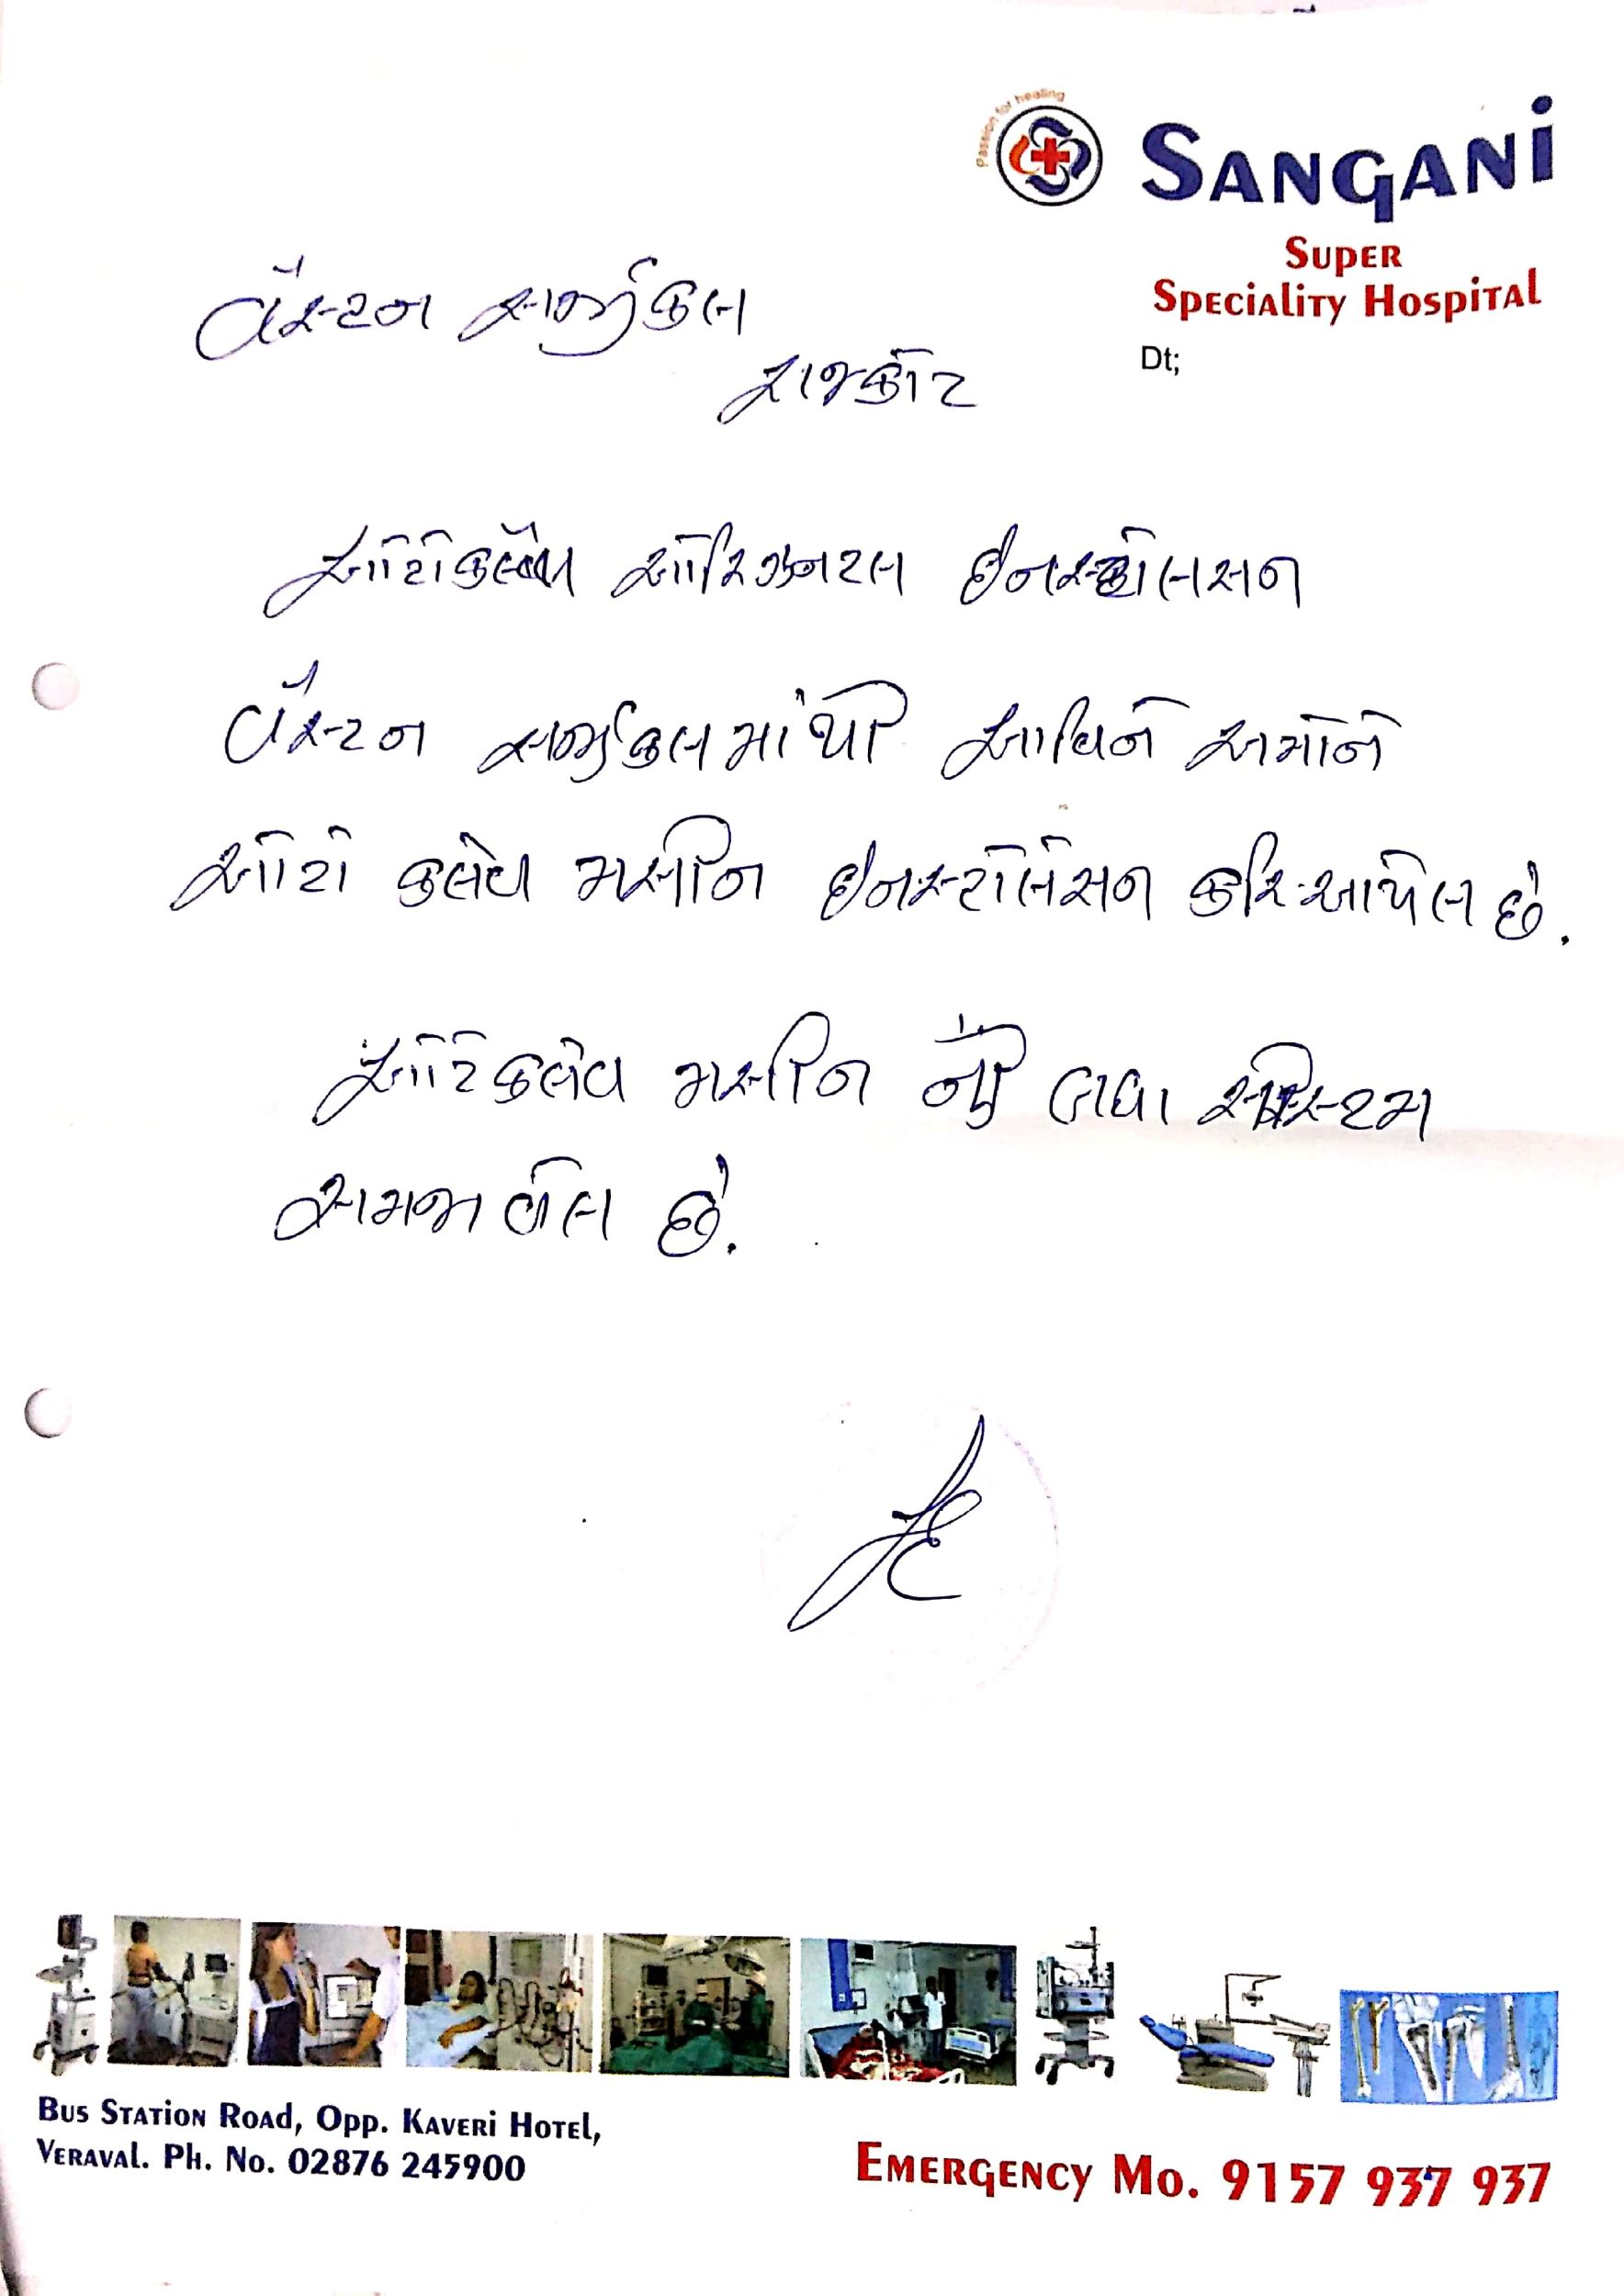 Passion for healing
SANGANI
SUPER
SPECIALITY HOSPITAL
Dt;
વેસ્ટન સર્જીકલ
રાજકોટ
ઓટોકલેવ ઓરિઝનટલ ઇનસ્ટોલસન
વેસ્ટન સર્જીકલ માંથી આવિને અમોને
ઓટો કલેવ મસીન ઇનસ્ટોલેસન કરિ આપેલ છે.
ઓટેકલેવ મસીન નુ બધા સીસ્ટમ
સમજાવેલ છે.
BUS STATION ROAD, OPP. KAVERI HOTEL,
VERAVAL. PH. NO. 02876 245900
EMERGENCY MO. 9157 937 937